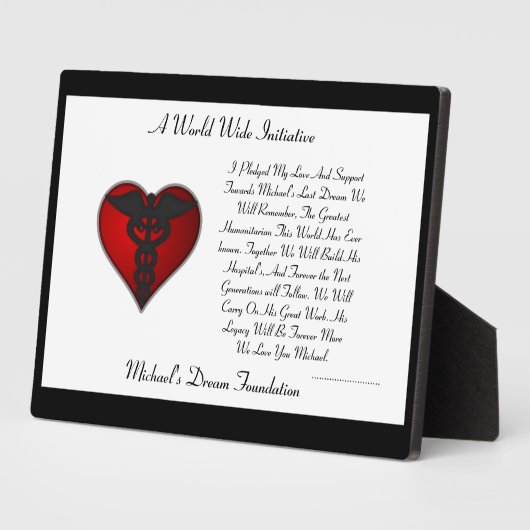 A World Wide Initiative
I Pledged My Love And Support
Towards Michael's Last Dream We
Will Remember, The Greatest
Humanitarian This World Has Ever
known. Together We Will Build His
Hospital's, And Forever the Next
Generations will Follow. We Will
Carry On His Great Work. His
Legacy Will Be Forever More
We Love You Michael.
Michael's Dream Foundation
..........................